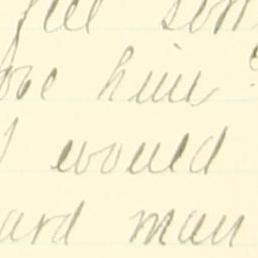 feel som
ove him?
I would
ard man